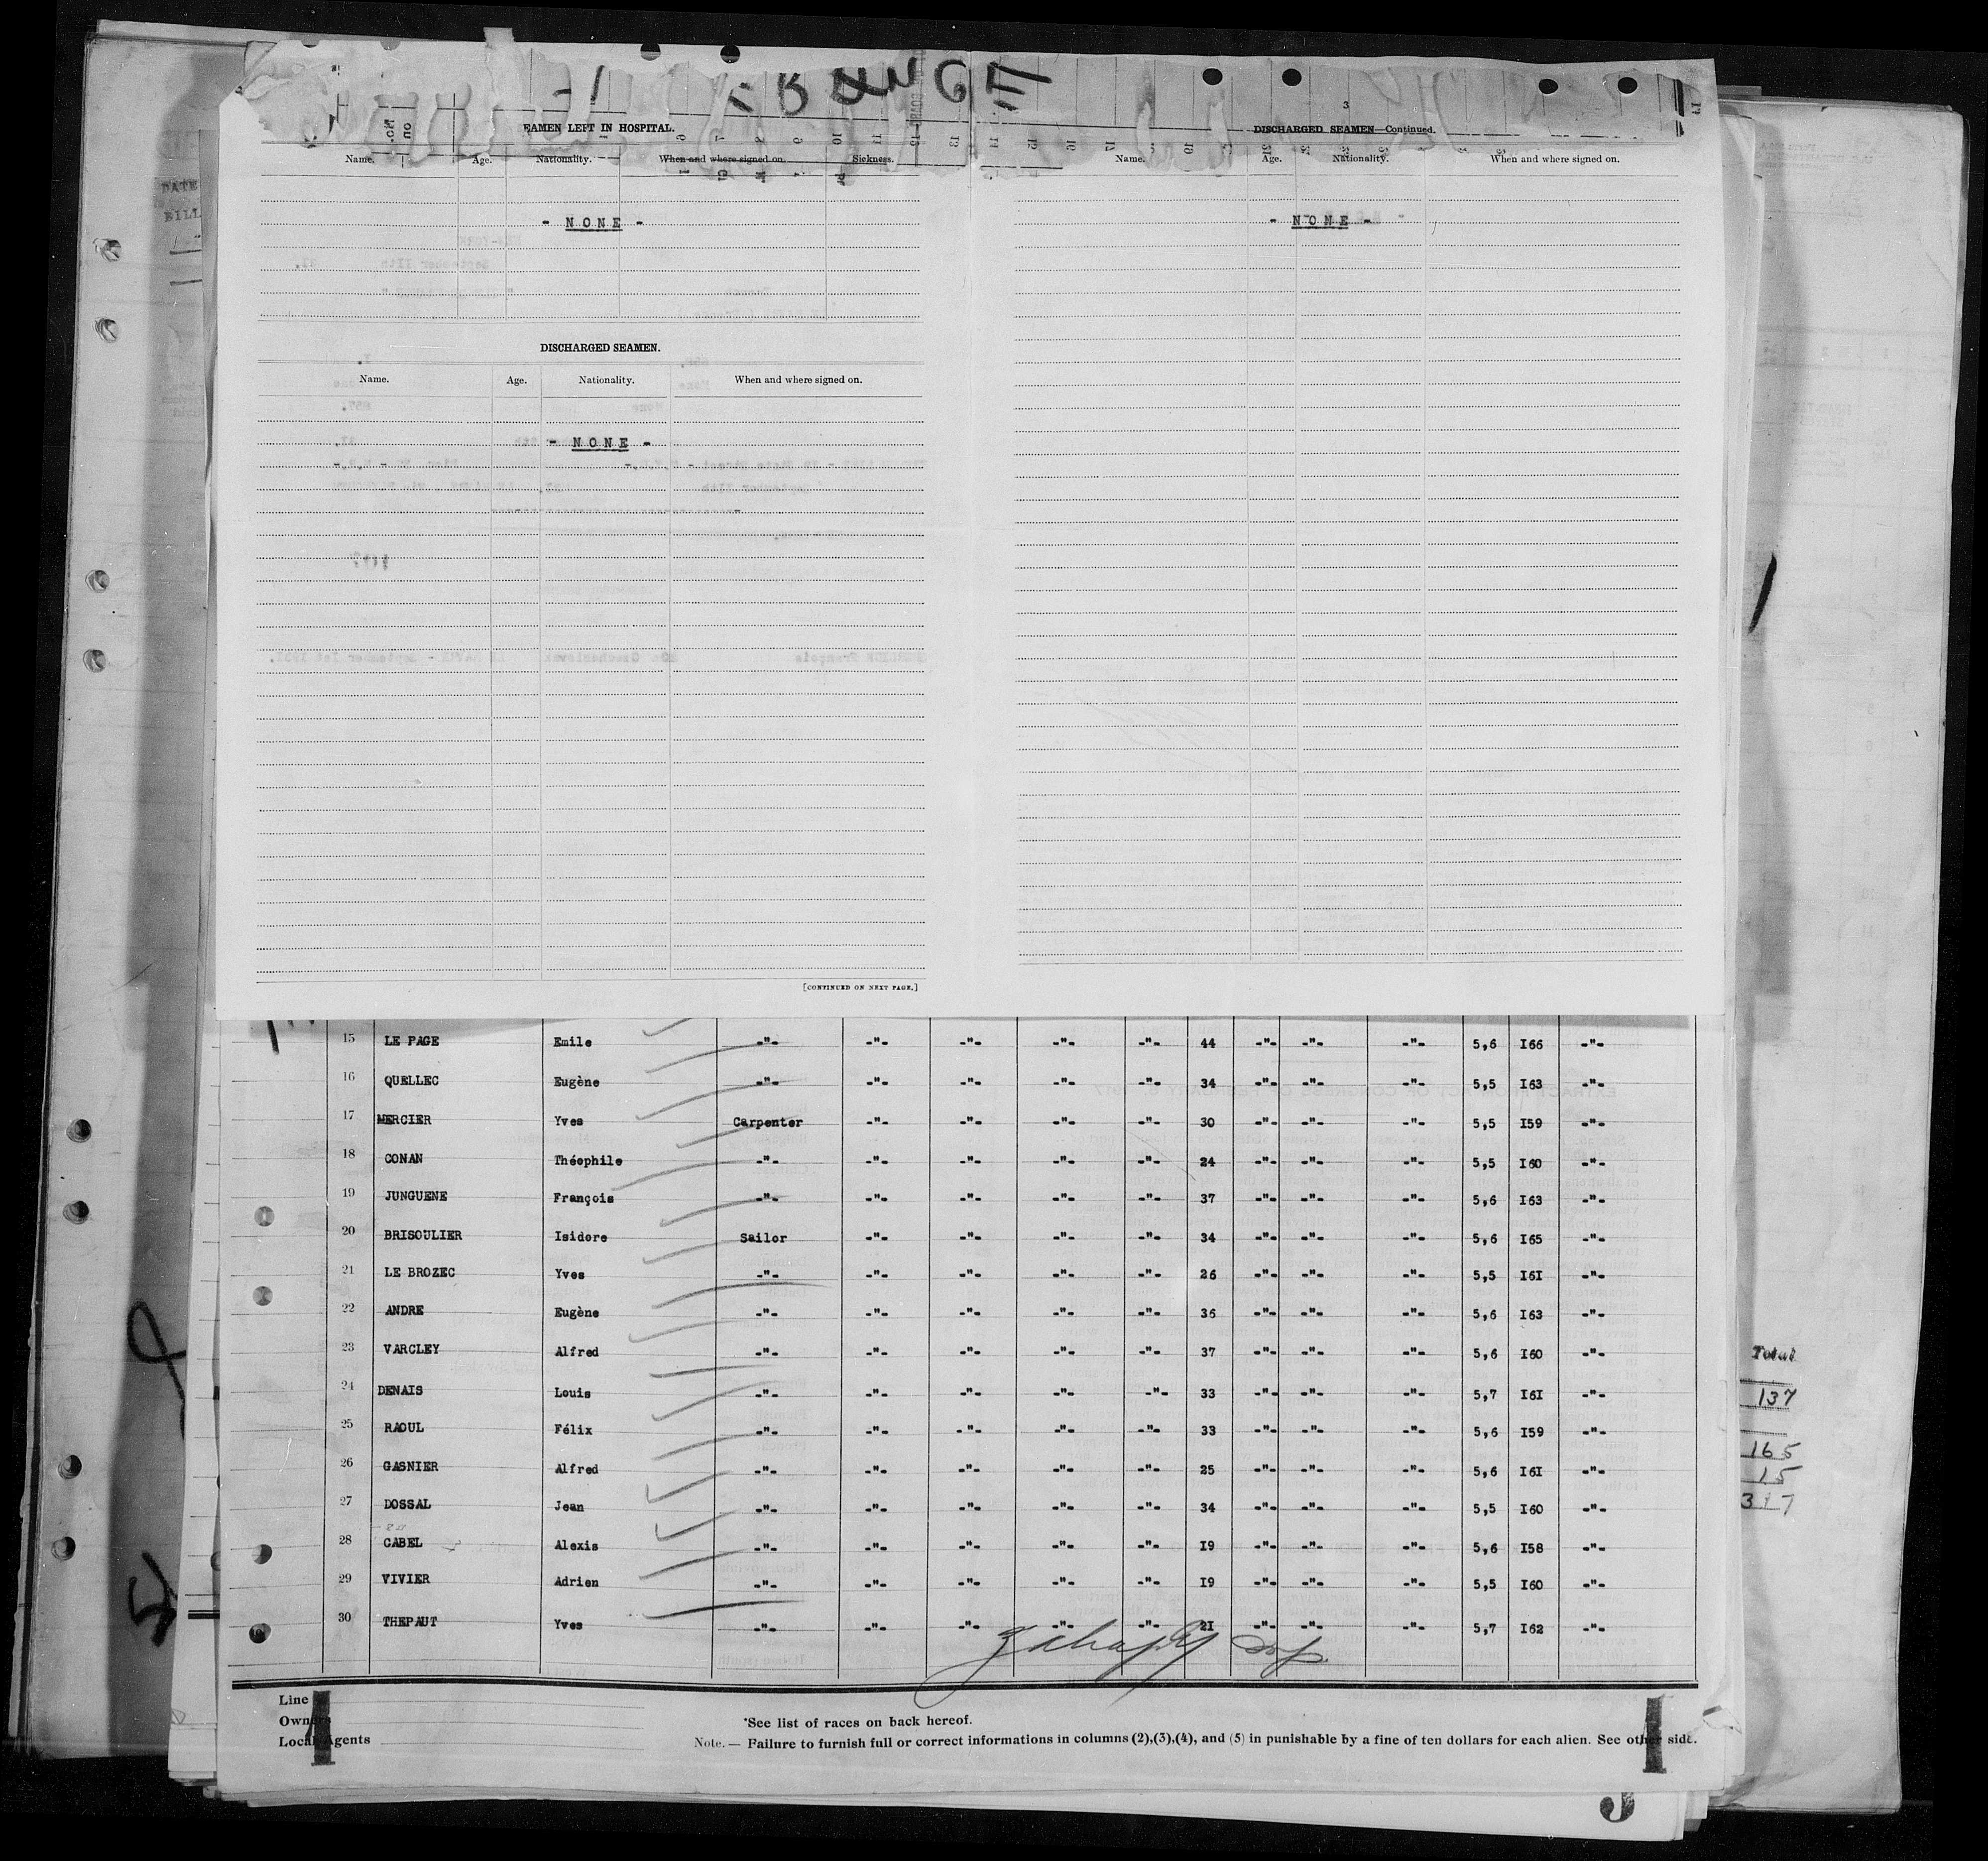 3
SEAMEN LEFT IN HOSPITAL.
Name. Age. Nationality. When and where signed on. Sickness.
- NONE -
DISCHARGED SEAMEN.
Name. Age. Nationality. When and where signed on.
- NONE -
[CONTINUED ON NEXT PAGE.]
DISCHARGED SEAMEN—Continued.
Name. Age. Nationality. When and where signed on.
- NONE -
15 LE PAGE Emile -"- -"- -"- -"- -"- 44 -"- -"- -"- 5,6 I66 -"-
16 QUELLEC Eugène -"- -"- -"- -"- -"- 34 -"- -"- -"- 5,5 I63 -"-
17 MERCIER Yves Carpenter -"- -"- -"- -"- 30 -"- -"- -"- 5,5 I59 -"-
18 CONAN Théophile -"- -"- -"- -"- -"- 24 -"- -"- -"- 5,5 I60 -"-
19 JUNGUENE François -"- -"- -"- -"- -"- 37 -"- -"- -"- 5,6 I63 -"-
20 BRISOULIER Isidore Sailor -"- -"- -"- -"- 34 -"- -"- -"- 5,6 I65 -"-
21 LE BROZEC Yves -"- -"- -"- -"- -"- 26 -"- -"- -"- 5,5 I6I -"-
22 ANDRE Eugène -"- -"- -"- -"- -"- 36 -"- -"- -"- 5,6 I63 -"-
23 VARCLEY Alfred -"- -"- -"- -"- -"- 37 -"- -"- -"- 5,6 I60 -"-
24 DENAIS Louis -"- -"- -"- -"- -"- 33 -"- -"- -"- 5,7 I6I -"-
25 RAOUL Félix -"- -"- -"- -"- -"- 33 -"- -"- -"- 5,6 I59 -"-
26 GASNIER Alfred -"- -"- -"- -"- -"- 25 -"- -"- -"- 5,6 I6I -"-
27 DOSSAL Jean -"- -"- -"- -"- -"- 34 -"- -"- -"- 5,5 I60 -"-
28 CABEL Alexis -"- -"- -"- -"- -"- I9 -"- -"- -"- 5,6 I58 -"-
29 VIVIER Adrien -"- -"- -"- -"- -"- I9 -"- -"- -"- 5,5 I60 -"-
30 THEPAUT Yves -"- -"- -"- -"- -"- 2I -"- -"- -"- 5,7 I62 -"-
Line
Owners
Local Agents
*See list of races on back hereof.
Note. — Failure to furnish full or correct informations in columns (2),(3),(4), and (5) in punishable by a fine of ten dollars for each alien. See other side.
Total
137
165
15
317